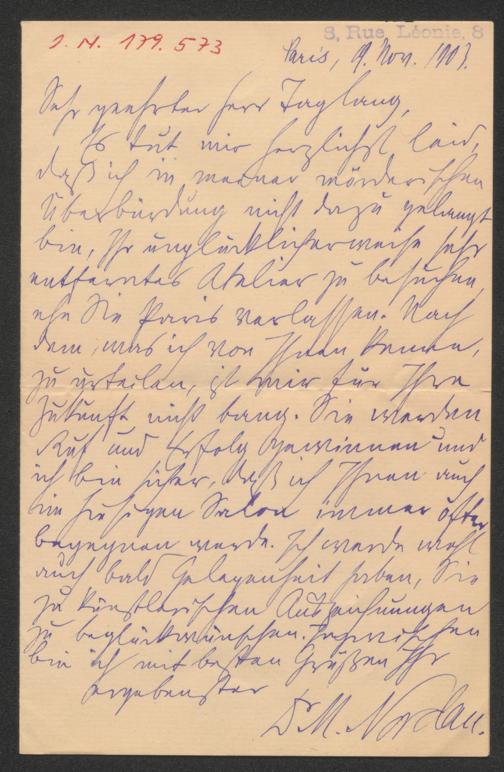 J. N. 179.573
8, Rue Léonie, 8
Paris, 9. Nov. 1903.
Sehr geehrter Herr Taglang,
Es tut mir herzlichst leid,
daß ich in meiner mörderischen
Überbürdung nicht dazu gelangt
bin, Ihr unglücklicherweise sehr
entferntes Atelier zu besuchen,
ehe Sie Paris verlassen. Nach
dem, was ich von Ihnen kenne,
zu urteilen, ist mir für Ihre
Zukunft nicht bang. Sie werden
Ruf und Erfolg gewinnen und
ich bin sicher, daß ich Ihnen auch
im hiesigen Salon immer öfter
begegnen werde. Ich werde wohl
auch bald Gelegenheit haben, Sie
zu künstlerischen Auszeichnungen
zu beglückwünschen. Inzwischen
bin ich mit besten Grüßen Ihr
ergebenster
Dr M. Nordau.